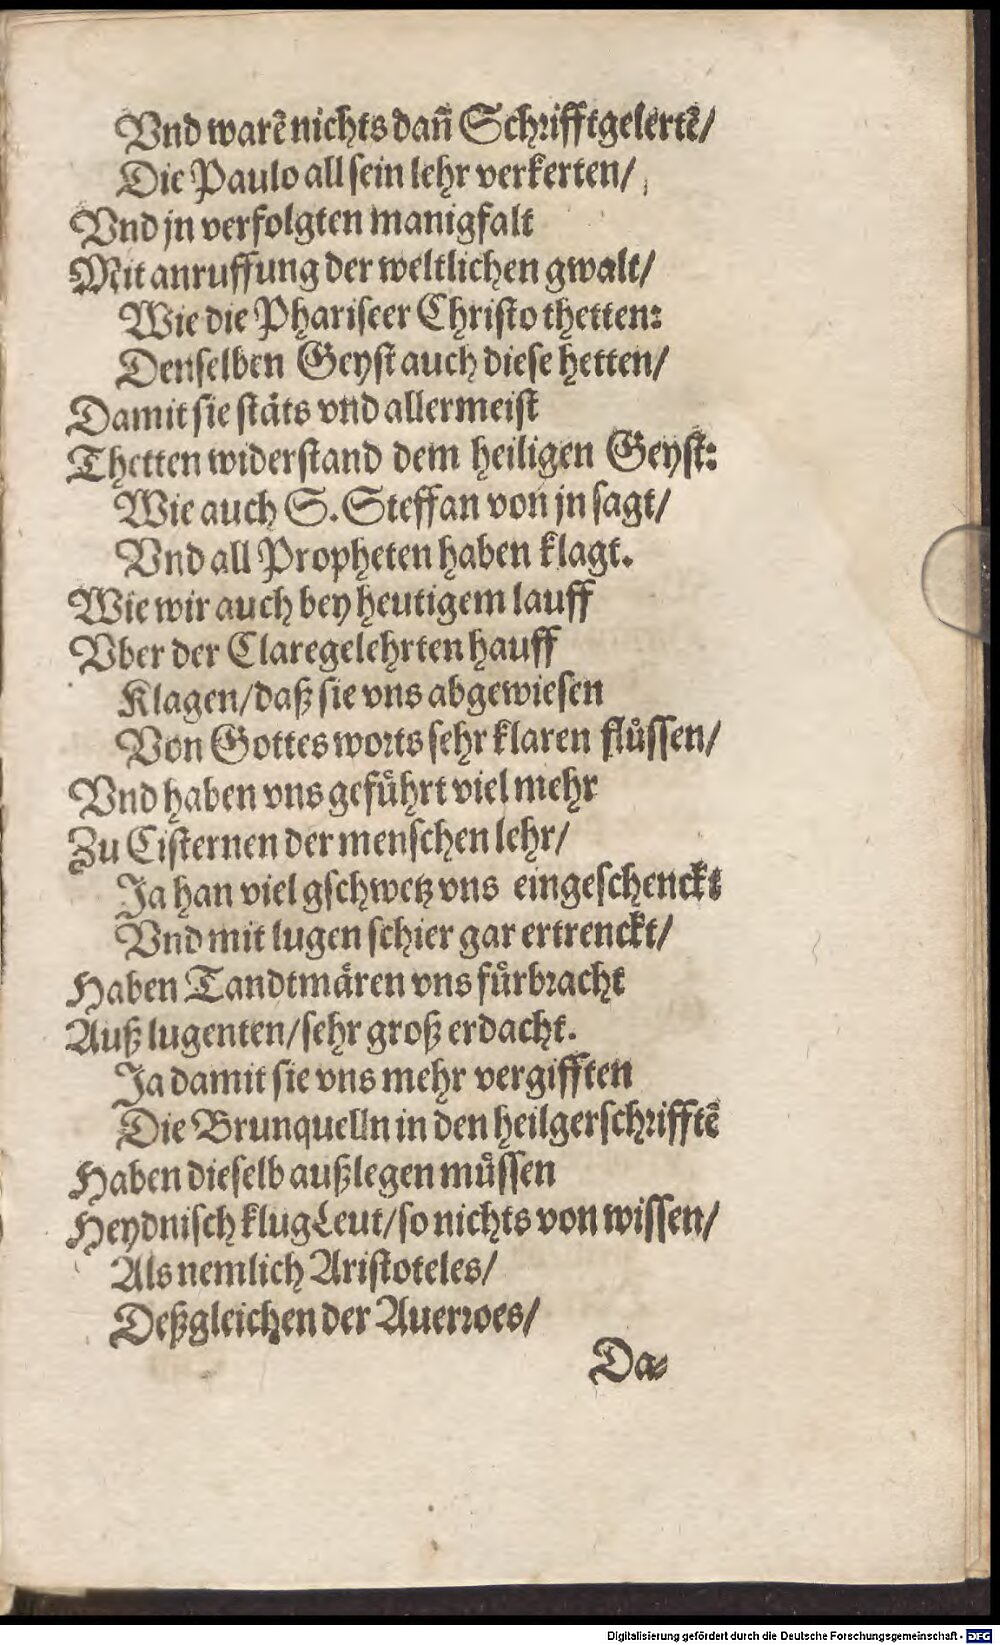 Vnd warẽ nichts dañ Schrifftgelertẽ/
Die Paulo all sein lehr verkerten/
Vnd jn verfolgten manigfalt
Mit anruffung der weltlichen gwalt/
Wie die Phariseer Christo thetten:
Denselben Geyst auch diese hetten/
Damit sie stäts vnd allermeist
Thetten widerstand dem heiligen Geyst:
Wie auch S. Steffan von jn sagt/
Vnd all Propheten haben klagt.
Wie wir auch bey heutigem lauff
Vber der Claregelehrten hauff
Klagen/daß sie vns abgewiesen
Von Gottes worts sehr klaren flüssen/
Vnd haben vns geführt viel mehr
Zu Cisternen der menschen lehr/
Ja han viel gschwetz vns eingeschenckt
Vnd mit lugen schier gar ertrenckt/
Haben Tandtmären vns fürbracht
Auß lugenten/sehr groß erdacht.
Ja damit sie vns mehr vergifften
Die Brunquelln in den heilgerschrifftẽ
Haben dieselb außlegen müssen
Heydnisch klug Leut/so nichts von wissen/
Als nemlich Aristoteles/
Deßgleichen der Auerroes/
Da-
Digitalisierung gefördert durch die Deutsche Forschungsgemeinschaft - DFG